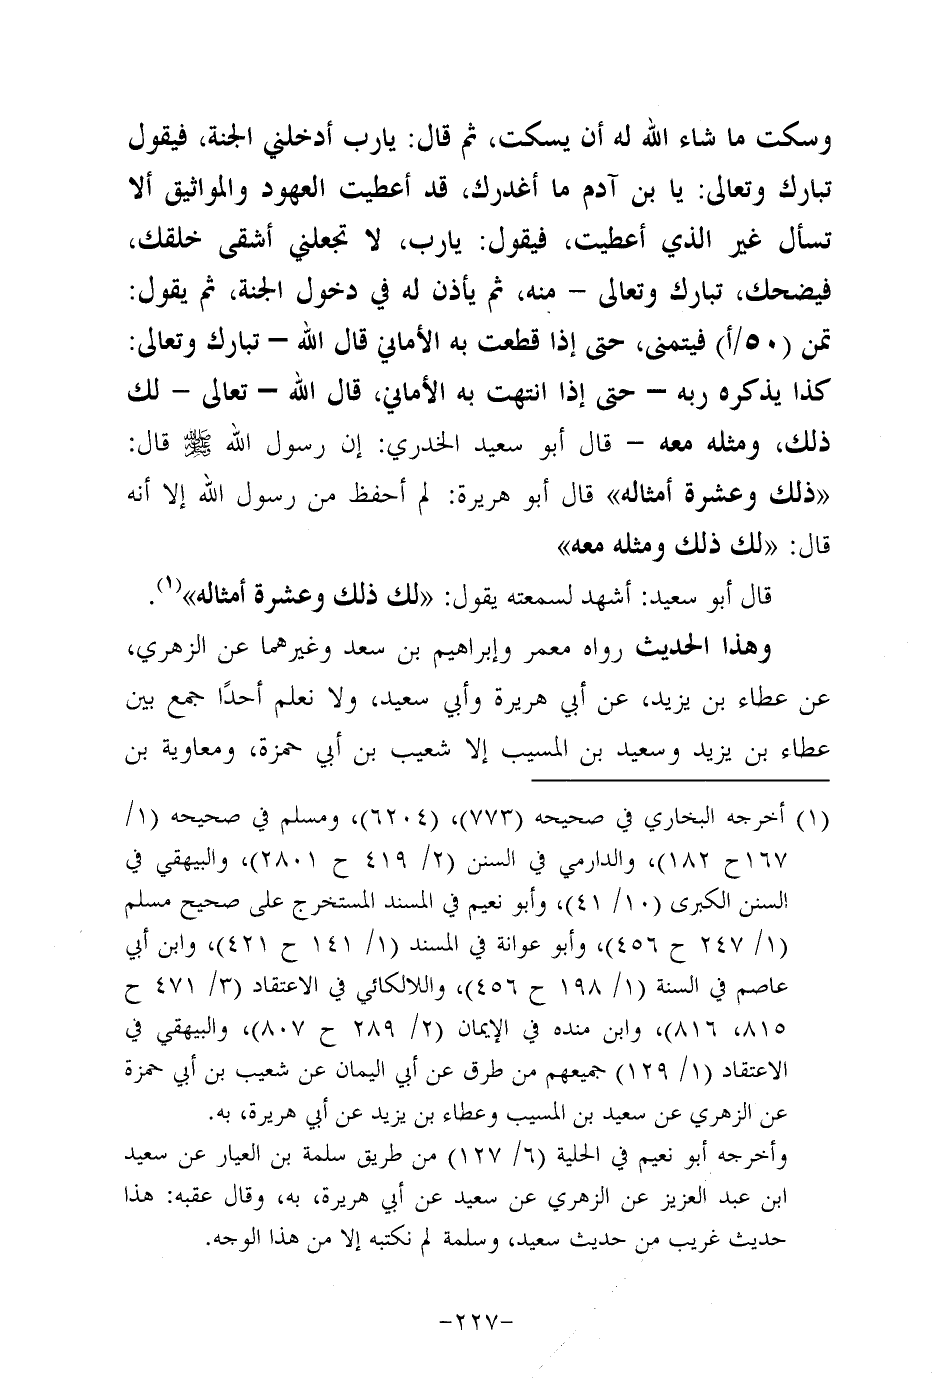 وسكت ما شاء الله له أن يسكت، ثم قال: يارب أدخلني الجنة، فيقول
تبارك وتعالى: يا بن آدم ما أغدرك، قد أعطيت العهود والمواثيق ألا
تسأل غير الذي أعطيت، فيقول: يارب، لا تجعلني أشقى خلقك،
فيضحك، تبارك وتعالى – منه، ثم يأذن له في دخول الجنة، ثم يقول:
تمن (٥٠/أ) فيتمنى، حتى إذا قطعت به الأماني قال الله – تبارك وتعالى:
كذا يذكره ربه – حتى إذا انتهت به الأماني، قال الله – تعالى – لك
ذلك، ومثله معه – قال أبو سعيد الخدري: إن رسول الله ﷺ قال:
«ذلك وعشرة أمثاله» قال أبو هريرة: لم أحفظ من رسول الله إلا أنه
قال: «لك ذلك ومثله معه»
قال أبو سعيد: أشهد لسمعته يقول: «لك ذلك وعشرة أمثاله»(١).
وهذا الحديث رواه معمر وإبراهيم بن سعد وغيرهما عن الزهري،
عن عطاء بن يزيد، عن أبي هريرة وأبي سعيد، ولا نعلم أحدًا جمع بين
عطاء بن يزيد وسعيد بن المسيب إلا شعيب بن أبي حمزة، ومعاوية بن
(١) أخرجه البخاري في صحيحه (٧٧٣)، (٦٢٠٤)، ومسلم في صحيحه (١/
١٦٧ح ١٨٢)، والدارمي في السنن (٢/ ٤١٩ ح ٢٨٠١)، والبيهقي في
السنن الكبرى (١٠/ ٤١)، وأبو نعيم في المسند المستخرج على صحيح مسلم
(١/ ٢٤٧ ح ٤٥٦)، وأبو عوانة في المسند (١/ ١٤١ ح ٤٢١)، وابن أبي
عاصم في السنة (١/ ١٩٨ ح ٤٥٦)، واللالكائي في الاعتقاد (٣/ ٤٧١ ح
٨١٥، ٨١٦)، وابن منده في الإيمان (٢/ ٢٨٩ ح ٨٠٧)، والبيهقي في
الاعتقاد (١/ ١٢٩) جميعهم من طرق عن أبي اليمان عن شعيب بن أبي حمزة
عن الزهري عن سعيد بن المسيب وعطاء بن يزيد عن أبي هريرة، به.
وأخرجه أبو نعيم في الحلية (٦/ ١٢٧) من طريق سلمة بن العيار عن سعيد
ابن عبد العزيز عن الزهري عن سعيد عن أبي هريرة، به، وقال عقبه: هذا
حديث غريب من حديث سعيد، وسلمة لم نكتبه إلا من هذا الوجه.
-٢٢٧-